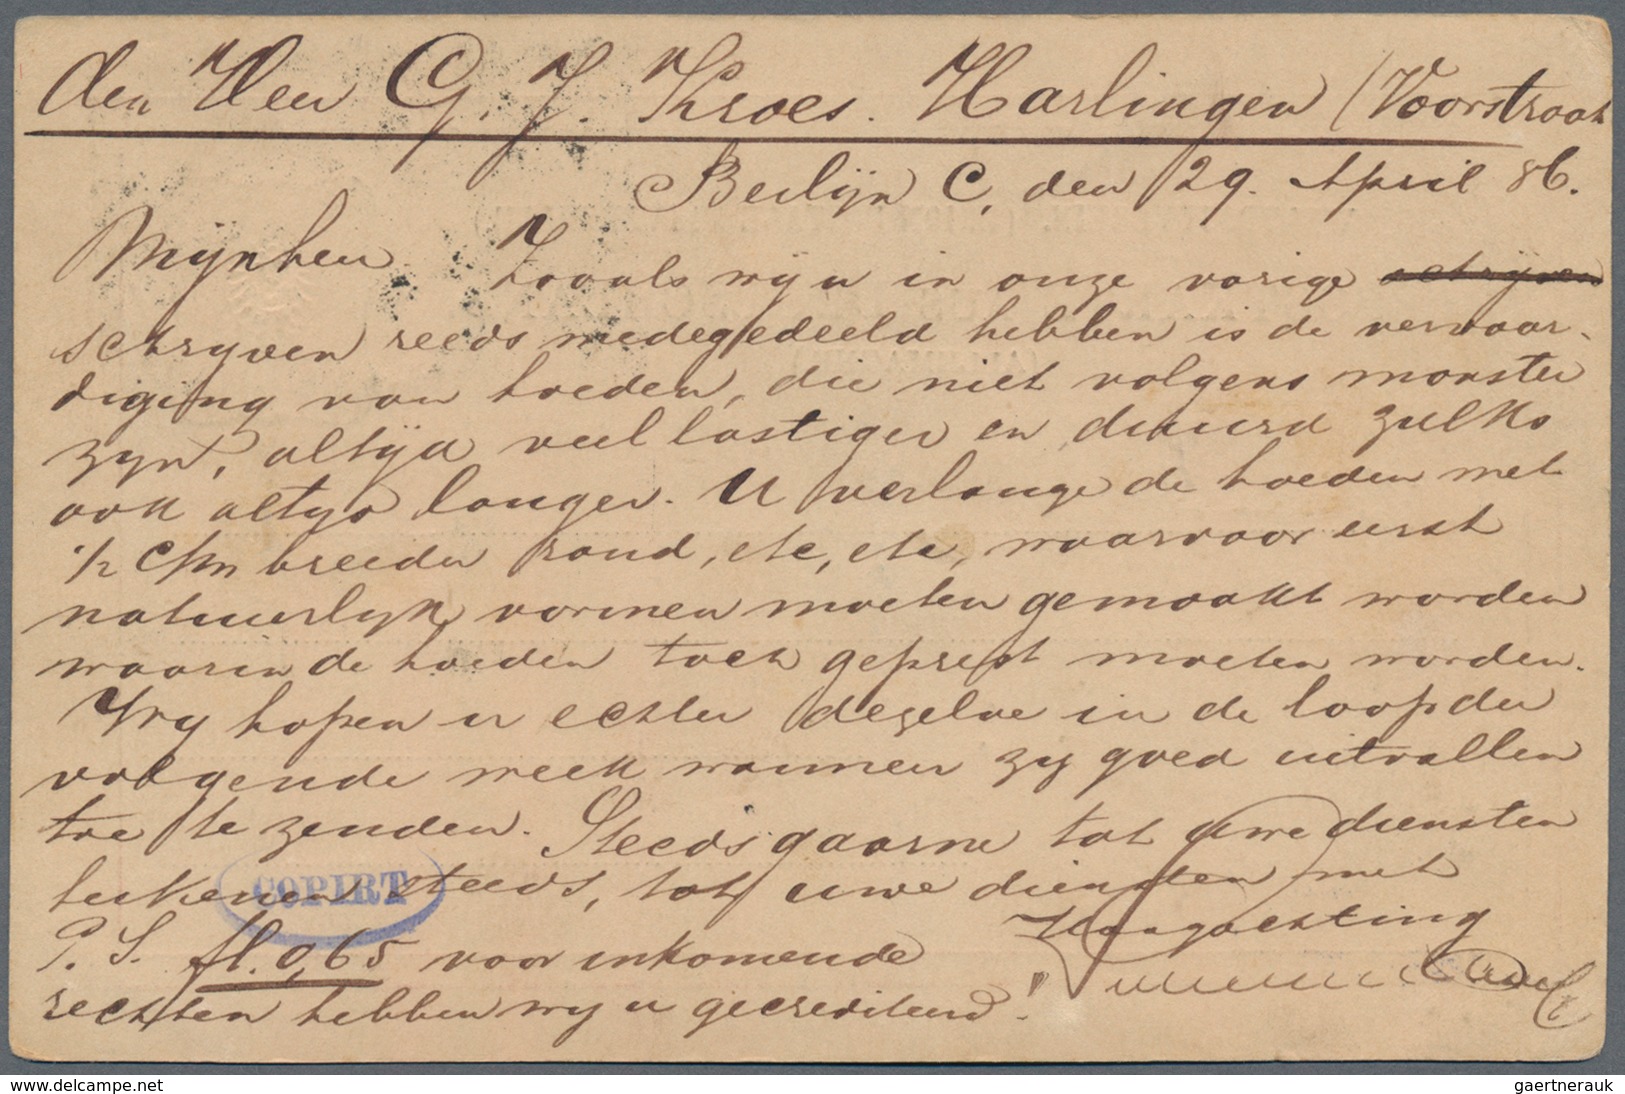 den Heer G. J. Kroes. Harlingen (Voorstraat
Berlijn C, den 29. April 86.
Mijnheer Zooals wij u in onze vorige schrijven
schryven reeds medegedeeld hebben is de vervaar-
diging van hoeden, die niet volgens monster
zyn, altijd veel lastiger en duurd zulks
ook altyd langer. U verlangde de hoeden met
1/2 c/m breeder rand, etc, etc, waarvoor eerst
natuurlyk vormen moeten gemaakt worden
waarin de hoeden toch geprest moeten worden.
Wy hopen u echter dezelve in de loop der
volgende week wanneer zy goed uitvallen
toe te zenden. Steeds gaarne tot uwe diensten
teekenen steeds, tot uwe diensten met
COPIRT
Hoogachting
P. S. fl. 0,65 voor inkomende
rechten hebben wy u gecrediteerd!
gaertnerauk
www.delcampe.net